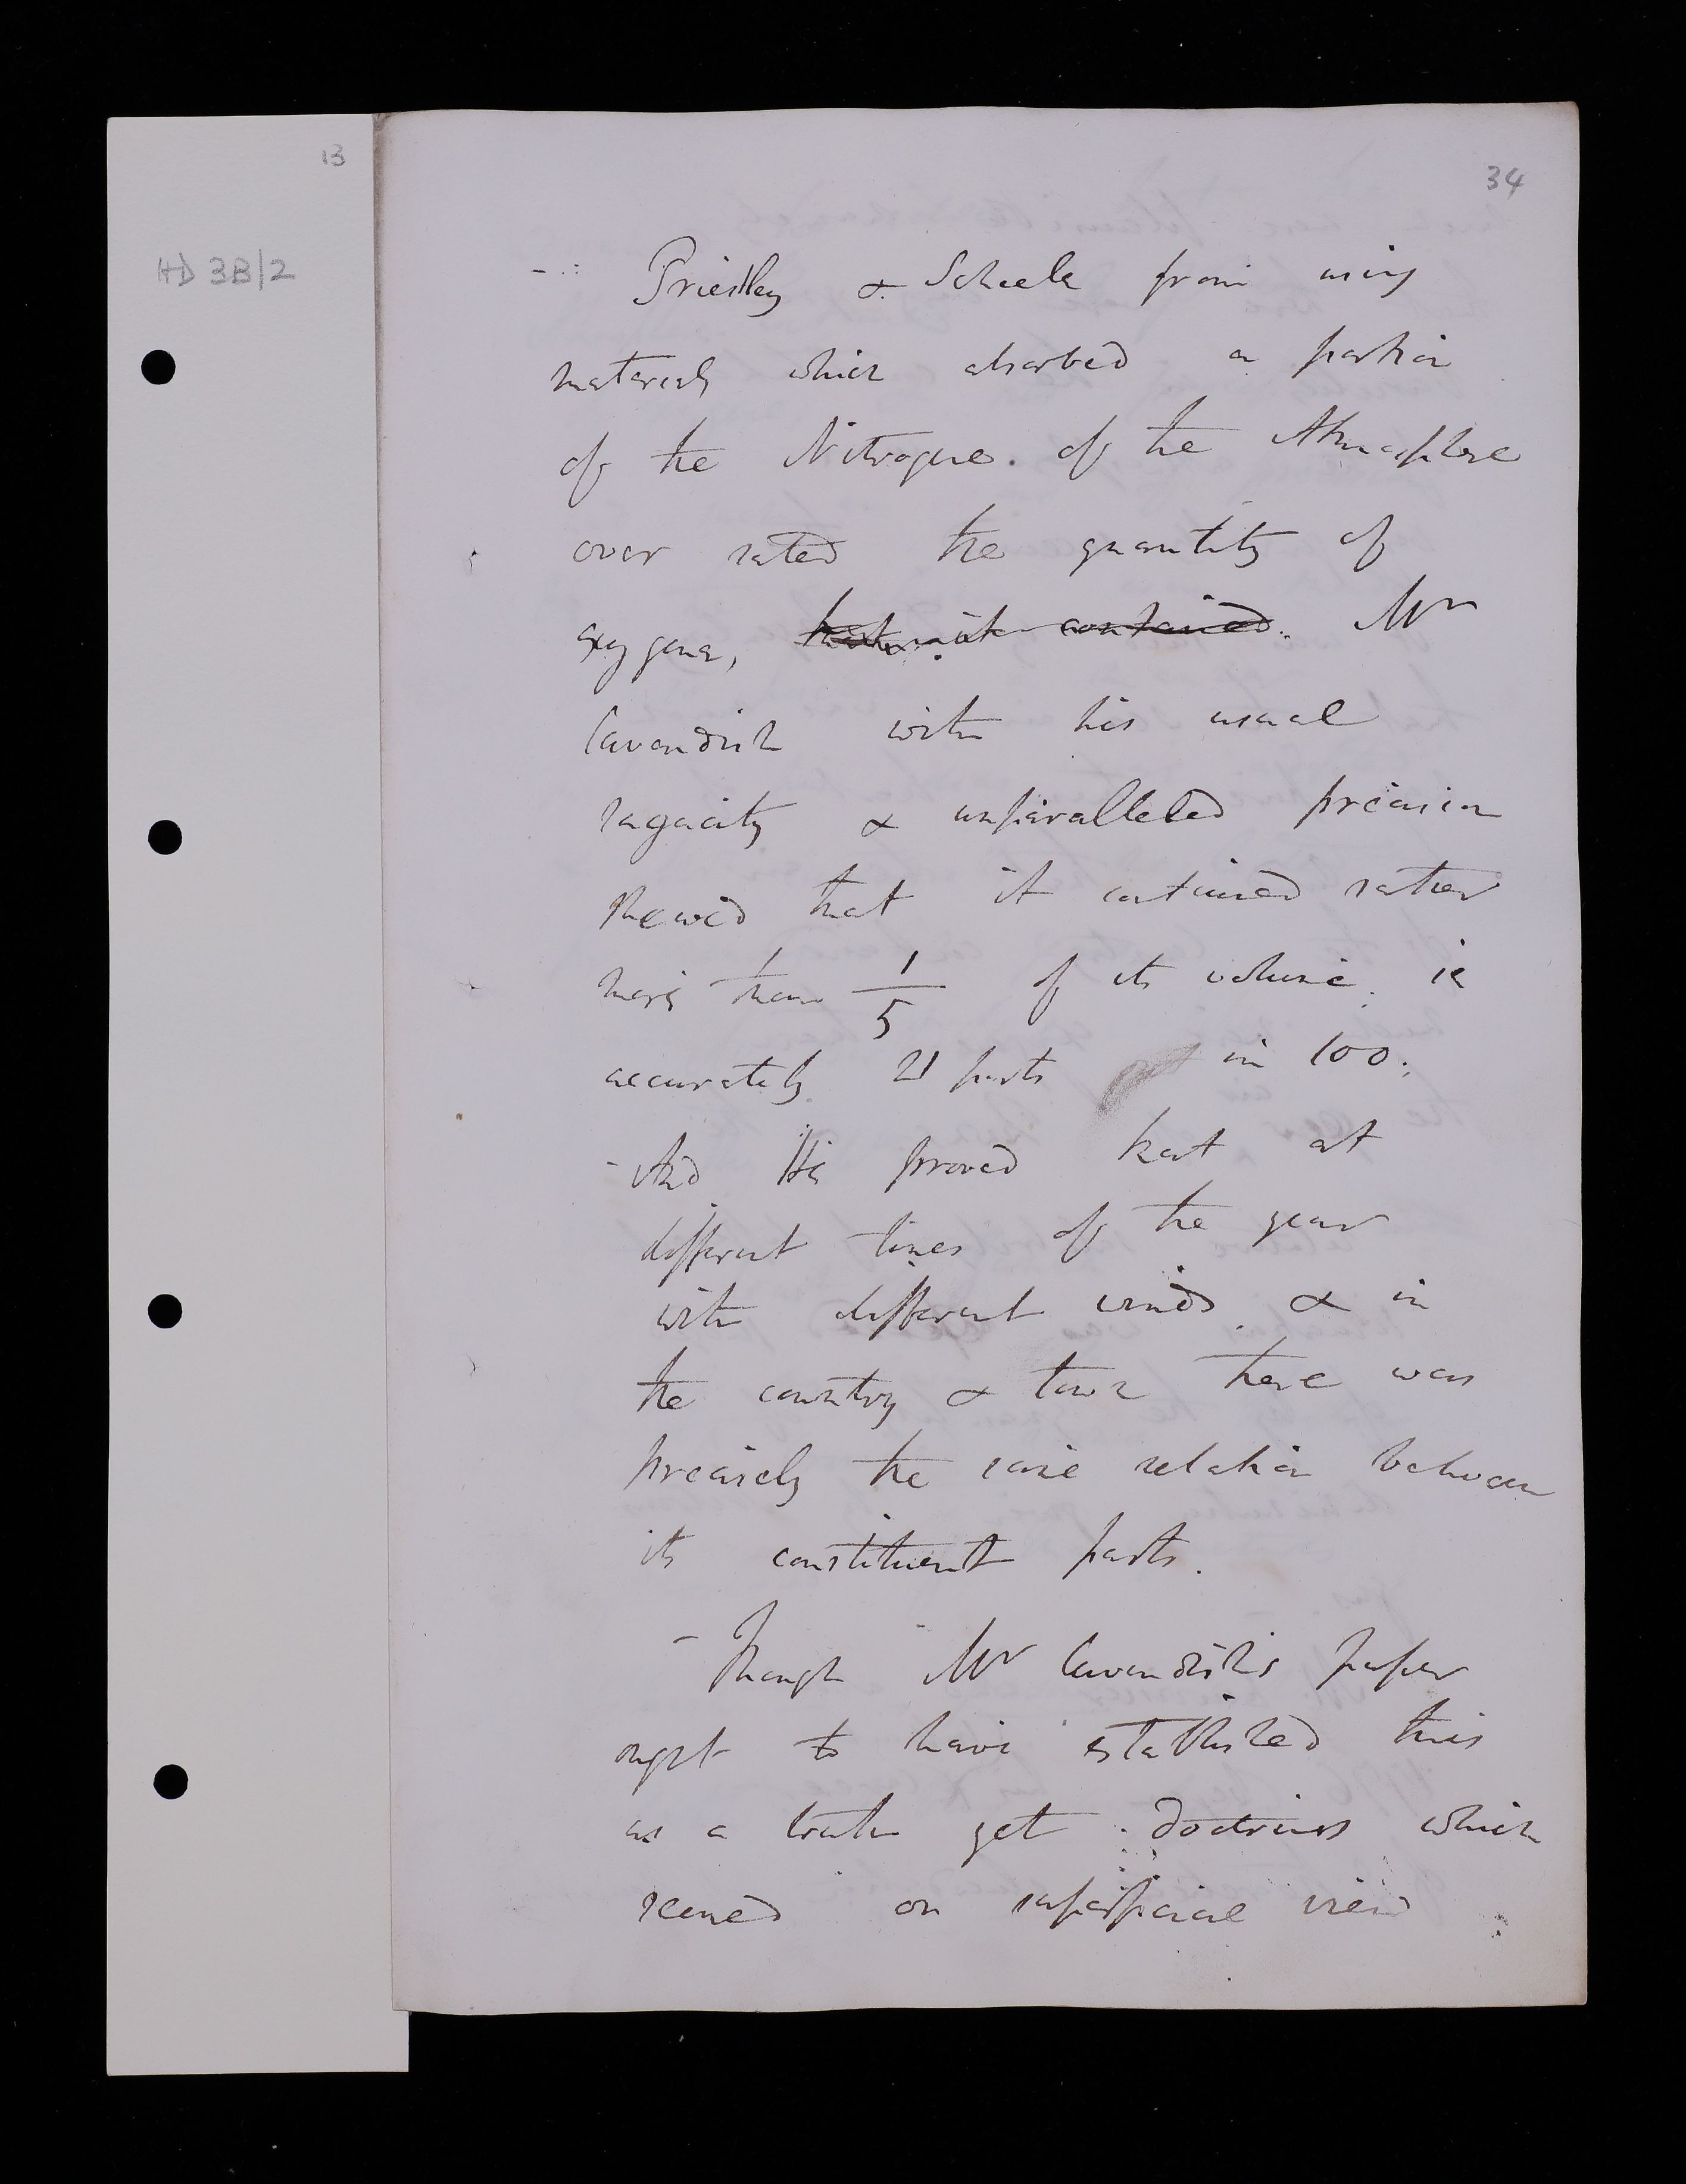 13
34
HD 3B/2
- Priestley & Scheele from using
materials which absorbed a portion
of the Nitrogene. of the Atmosphere
over rated the quantity of
oxygene, it contained. Mr
Cavendish with his usual
sagacity & unparalleled precision
shewed that it contained rather
more than 1/5 of its volume. ie
accurately 21 parts in 100.
- And He proved that at
different times of the year
with different winds & in
the country & town there was
precisely the same relation between
its constituent parts.
- Though Mr Cavendish's paper
ought to have established this
as a truth yet doctrines which
seemed on superficial view